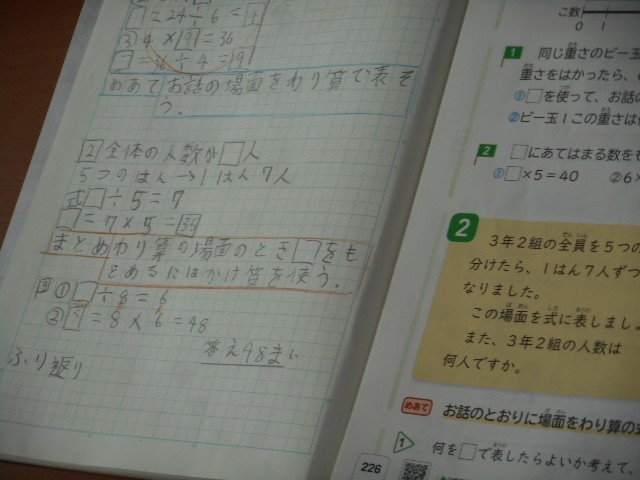 □=24÷6=
③4×9=36
□=36÷4=9
めあて お話の場面をわり算で表そ
う。
2 全体の人数が□人
5つのはん→1はん7人
式□÷5=7
□=7×5=35
まとめ わり算の場面のとき□をも
とめるにはかけ算を使う。
3 ①□÷8=6
②□=8×6=48
答え48まい
ふり返り
こ数
0 1
1 同じ重さのビー玉
重さをはかったら、
①□を使って、お話の
②ビー玉1この重さは
2 □にあてはまる数をも
①□×5=40 ②6×
2
3年2組の全員を5つの
分けたら、1はん7人ずつ
なりました。
この場面を式に表しまし
また、3年2組の人数は
何人ですか。
めあて お話のとおりに場面をわり算の式
1 何を□で表したらよいか考えて、
226